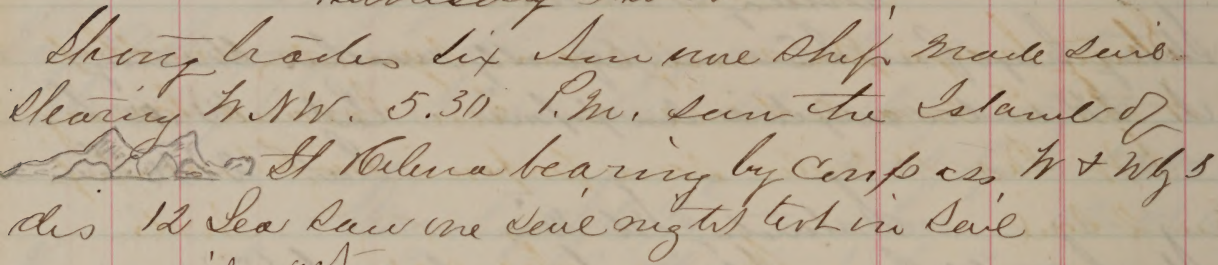 Strong trades six Am wore ship made sail
Stearing W.NW. 5.30 P.M. saw the Island of
St Helena bearing by Compass W & W by S
dis 12 Lea saw one sail night took in sail